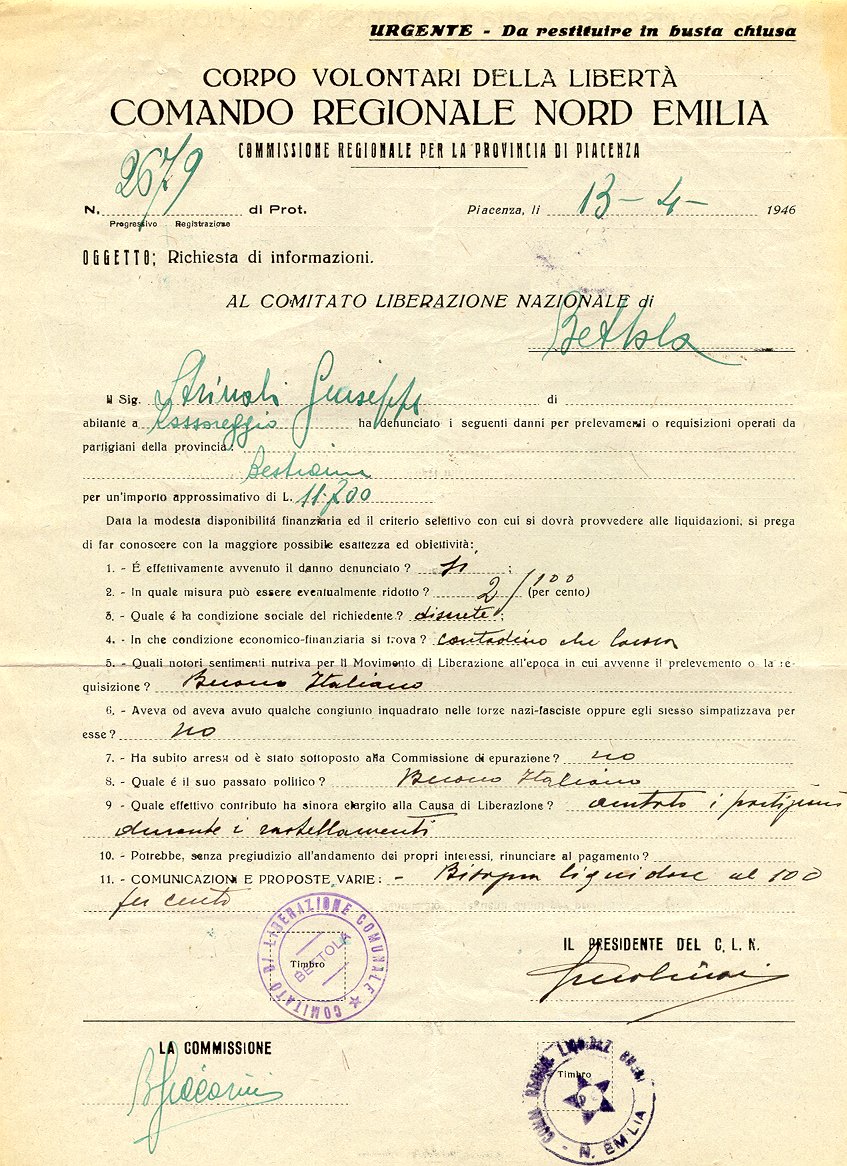 URGENTE - Da restituire in busta chiusa
CORPO VOLONTARI DELLA LIBERTÀ
COMANDO REGIONALE NORD EMILIA
COMMISSIONE REGIONALE PER LA PROVINCIA DI PIACENZA
N. 2679 di Prot.
Progressivo Registrazione
Piacenza, li 13 - 4 - 1946
OGGETTO; Richiesta di informazioni.
AL COMITATO LIBERAZIONE NAZIONALE di
Bettola
Il Sig. Giuseppe di
abitante a ha denunciato i seguenti danni per prelevamenti o requisizioni operati da
partigiani della provincia:
Bestiame
per un'importo approssimativo di L. 11.700
Data la modesta disponibilitá finanziaria ed il criterio selettivo con cui si dovrà provvedere alle liquidazioni, si prega
di far conoscere con la maggiore possibile esattezza ed obiettività:
1. - É effettivamente avvenuto il danno denunciato? si ;
2. - In quale misura può essere eventualmente ridotto? 2/100 (per cento)
3. - Quale é la condizione sociale del richiedente? discrete ;
4. - In che condizione economico-finanziaria si trova? contadino che lavora
5. - Quali notori sentimenti nutriva per il Movimento di Liberazione all'epoca in cui avvenne il prelevemento o la re-
quisizione? Buono Italiano
6. - Aveva od aveva avuto qualche congiunto inquadrato nelle forze nazi-fasciste oppure egli stesso simpatizzava per
esse? no
7. - Ha subito arresti od è stato sottoposto alla Commissione di epurazione? no
8. - Quale é il suo passato politico? Buono Italiano
9 - Quale effettivo contributo ha sinora elargito alla Causa di Liberazione? aiutato i partigiani
durante i rastellamenti
10. - Potrebbe, senza pregiudizio all'andamento dei propri interessi, rinunciare al pagamento?
11. - COMUNICAZIONI E PROPOSTE VARIE: - Bisogna liquidare al 100
per cento
COMITATO DI LIBERAZIONE COMUNALE
BETTOLA
Timbro
IL PRESIDENTE DEL C. L. N.
LA COMMISSIONE
Timbro
N. EMILIA